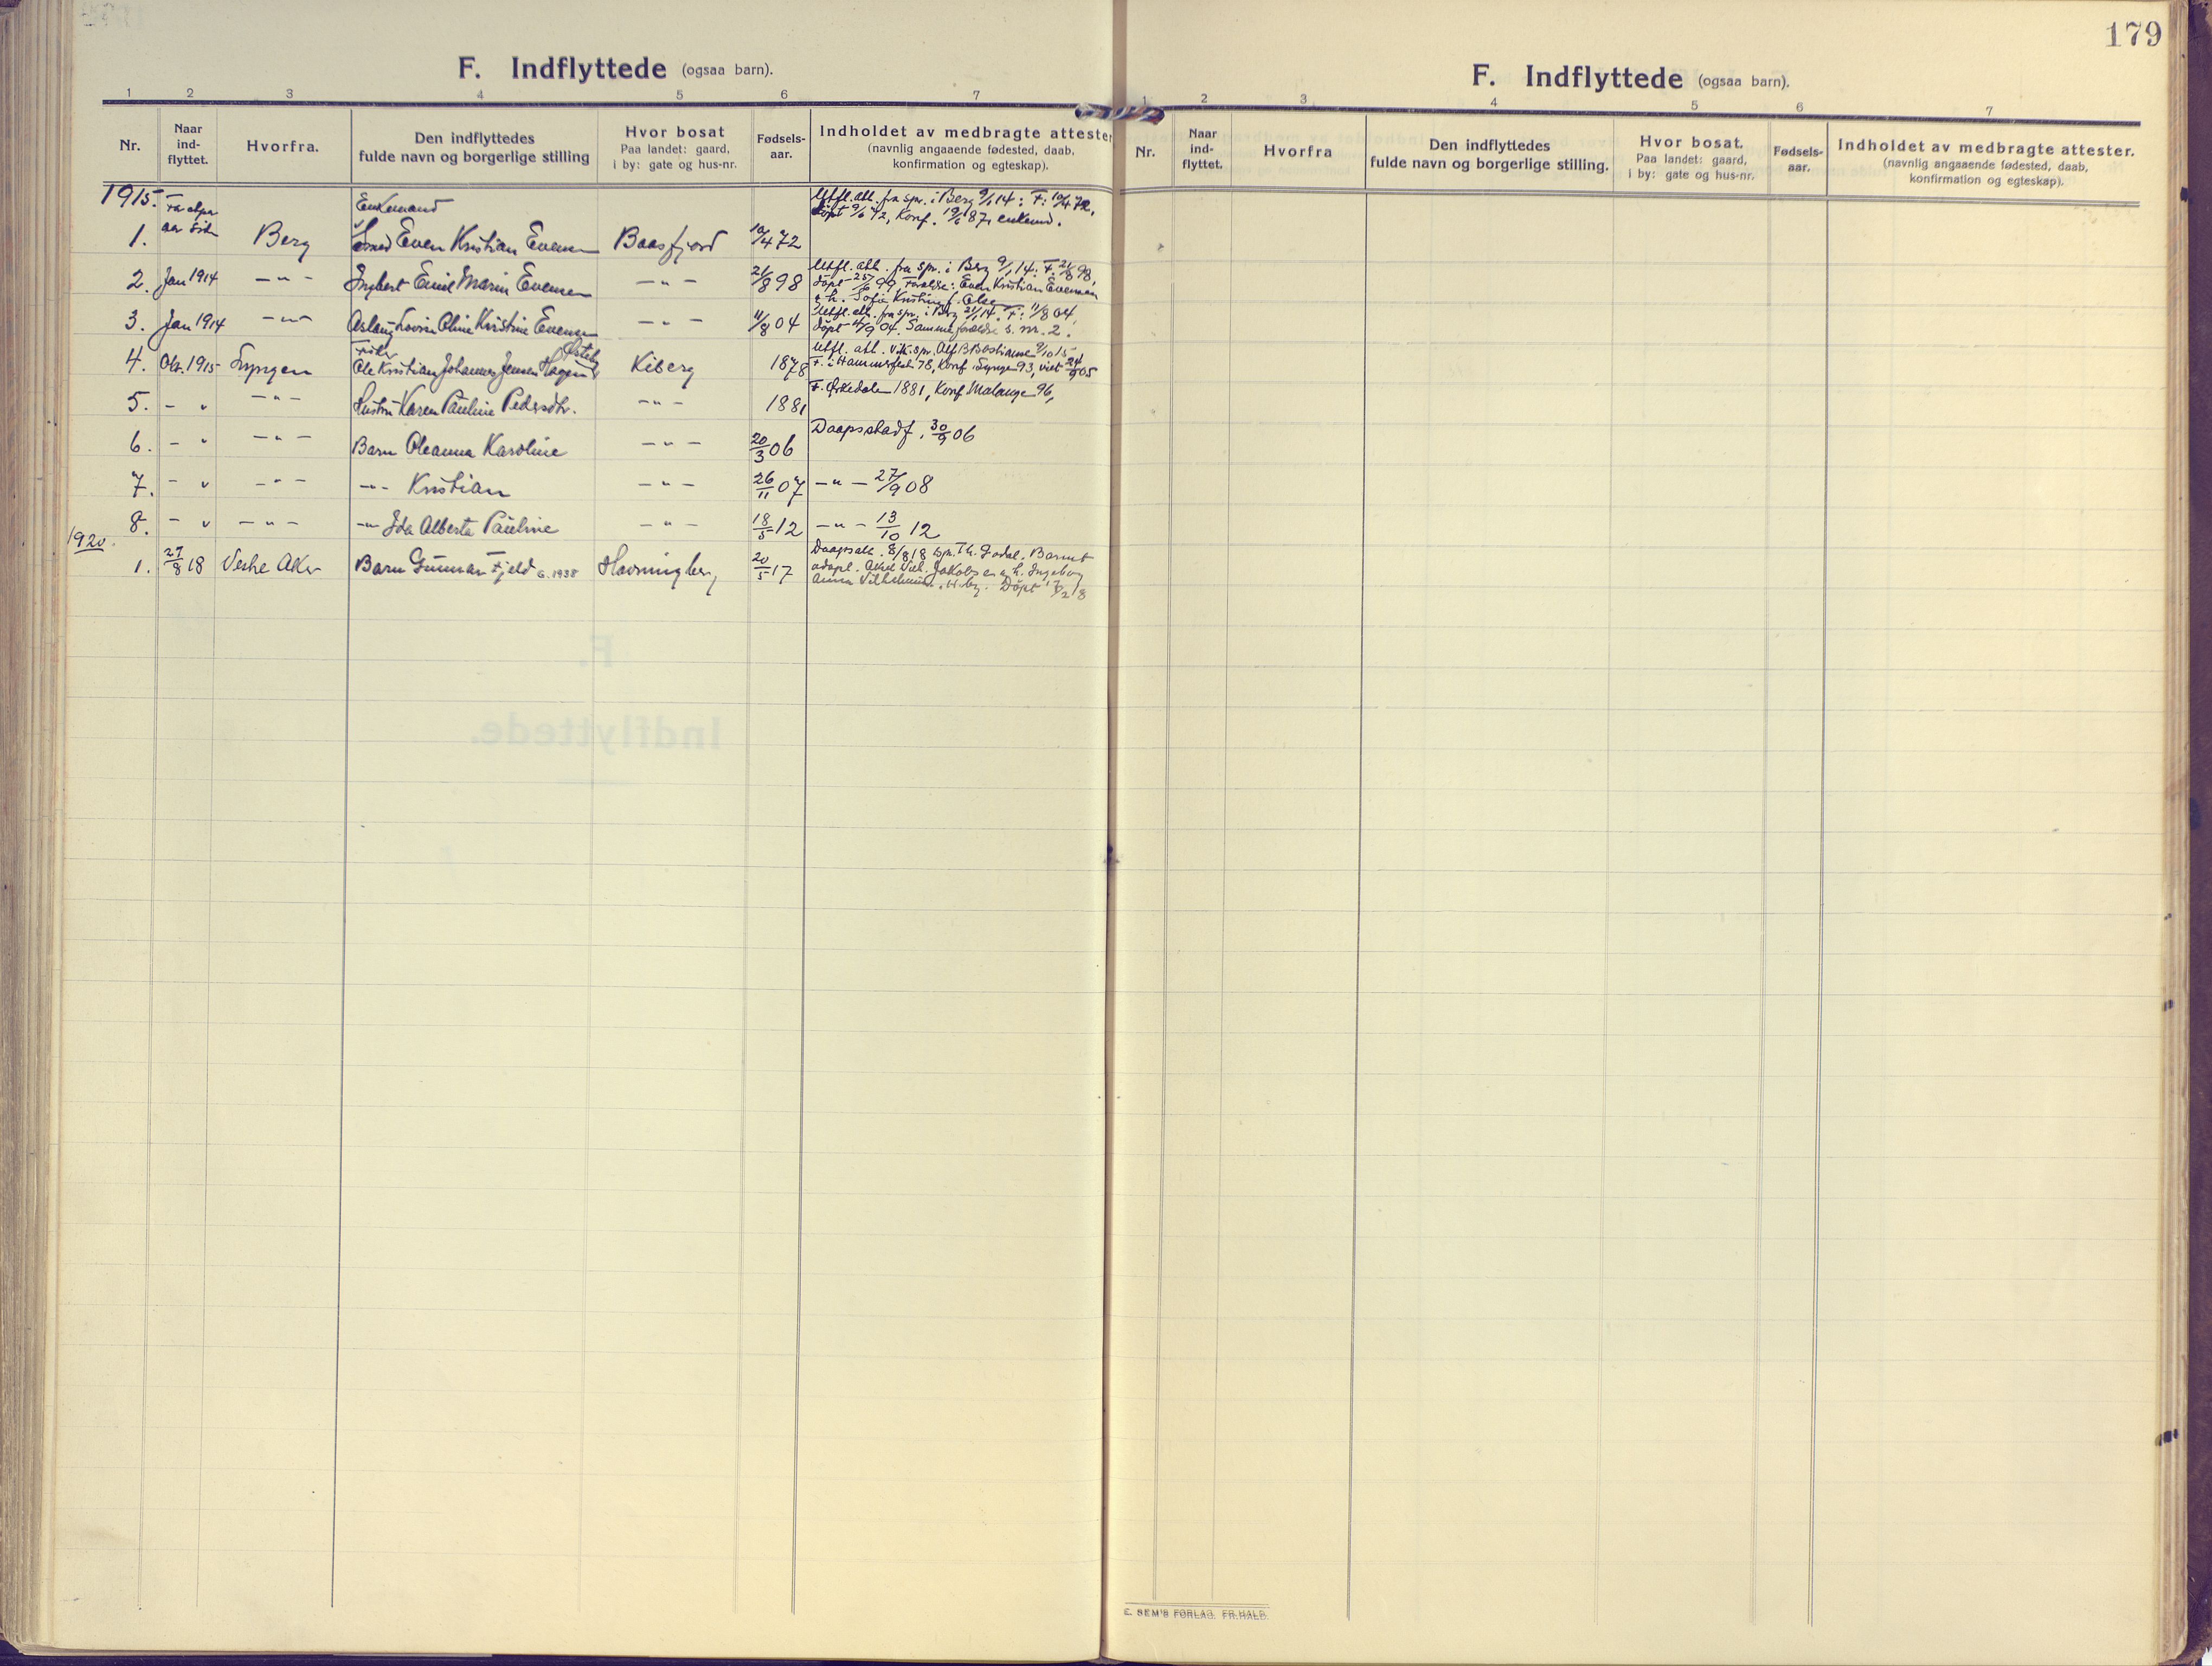 179
F. Indflyttede (ogsaa barn).
1 2 3 4 5 6 7
Nr.
Naar ind- flyttet.
Hvorfra.
Den indflyttedes
fulde navn og borgerlige stilling
Hvor bosat
Paa landet: gaard,
i by: gate og hus-nr.
Fødsels-
aar.
Indholdet av medbragte attester
(navnlig angaaende fødested, daab,
konfirmation og egteskap).
1915.
Enkemand
Utfl. att. fra spr. i Berg 9/1 14: F: 10/4 72,
døpt 9/6 72, Konf. 19/6 87, enkemd.
1. Berg Even Kristian Evensen Baasfjord 10/4 72
Utfl. att. fra spr. i Berg 9/1 14: F. 21/8 98,
2. Jan 1914 - " - Ingbert Emil Marin Evensen - " - 21/8 98
døpt 25/6 99 Forældre: Even Kristian Evensen
& h. Sofie Kristine f. Olse
Utfl. att. fra spr. i Berg 21/1 14. F: 11/8 04,
3. Jan 1914 - " - Aslaug Lovise Oline Kristine Evensen - " - 11/8 04
døpt 11/9 04. Samme forældre s. nr. 2.
Utfl. att. v. spr. Alf B Bastiansen 9/10 15
4. Okt. 1915 Lyngen Ole Kristian Johannes Jensen Hagen Kiberg 1878
F. i Hammerfest 78, Konf. Lyngen 93, viet 24/9 05
5. - " - " - Hustru Karen Pauline Pedersdtr. - " - 1881
F. Ørkedalen 1881, Konf Malangen 96,
6. - " - " - Barn Oleanna Karoline - " - 20/3 06 Daapsattest. 30/9 06
7. - " - " - - " - Kristian - " - 26/11 07 - " - 27/9 08
8. - " - " - - " - Ida Alberta Pauline - " - 18/5 12 - " - 13/10 12
1920.
Daapsatt. 8/8 18 spr. Th. Godal. Barnet
1. 27/8 18 Vestre Aker Barn Gunnar Fjeld G. 1938 Havningberg 20/5 17
adopt. Aksel Vilh. Jakobsen & h. Ingeborg
Anna Vilhelmine, H.berg. Døpt 17/2 18
F. Indflyttede (ogsaa barn).
1 2 3 4 5 6 7
Nr.
Naar ind- flyttet.
Hvorfra
Den indflyttedes
fulde navn og borgerlige stilling.
Hvor bosat.
Paa landet: gaard,
i by: gate og hus-nr.
Fødsels-
aar.
Indholdet av medbragte attester.
(navnlig angaaende fødested, daab,
konfirmation og egteskap).
E. SEM'S FORLAG. FR.HALD.